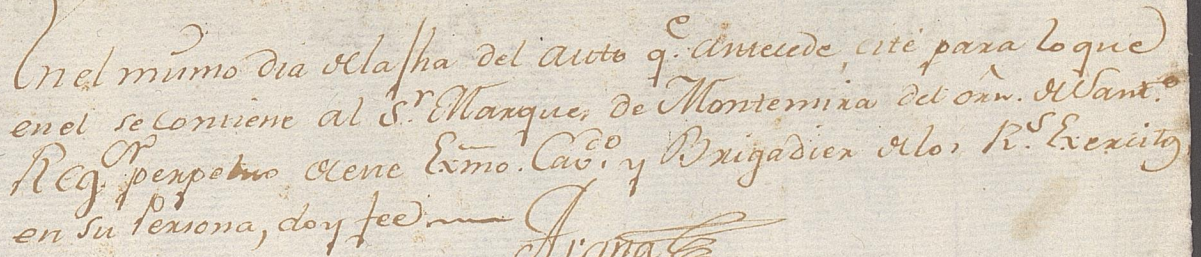 En el mismo dia de la fha del auto q.e antecede, cité para lo que
en el se contiene al S.r Marques de Montemira del orn. de Sant.o
Reg.or perpetuo de este Exmo. Cav.do y Brigadier de los R.s Exercitos
en su Persona, doy fee
Arana